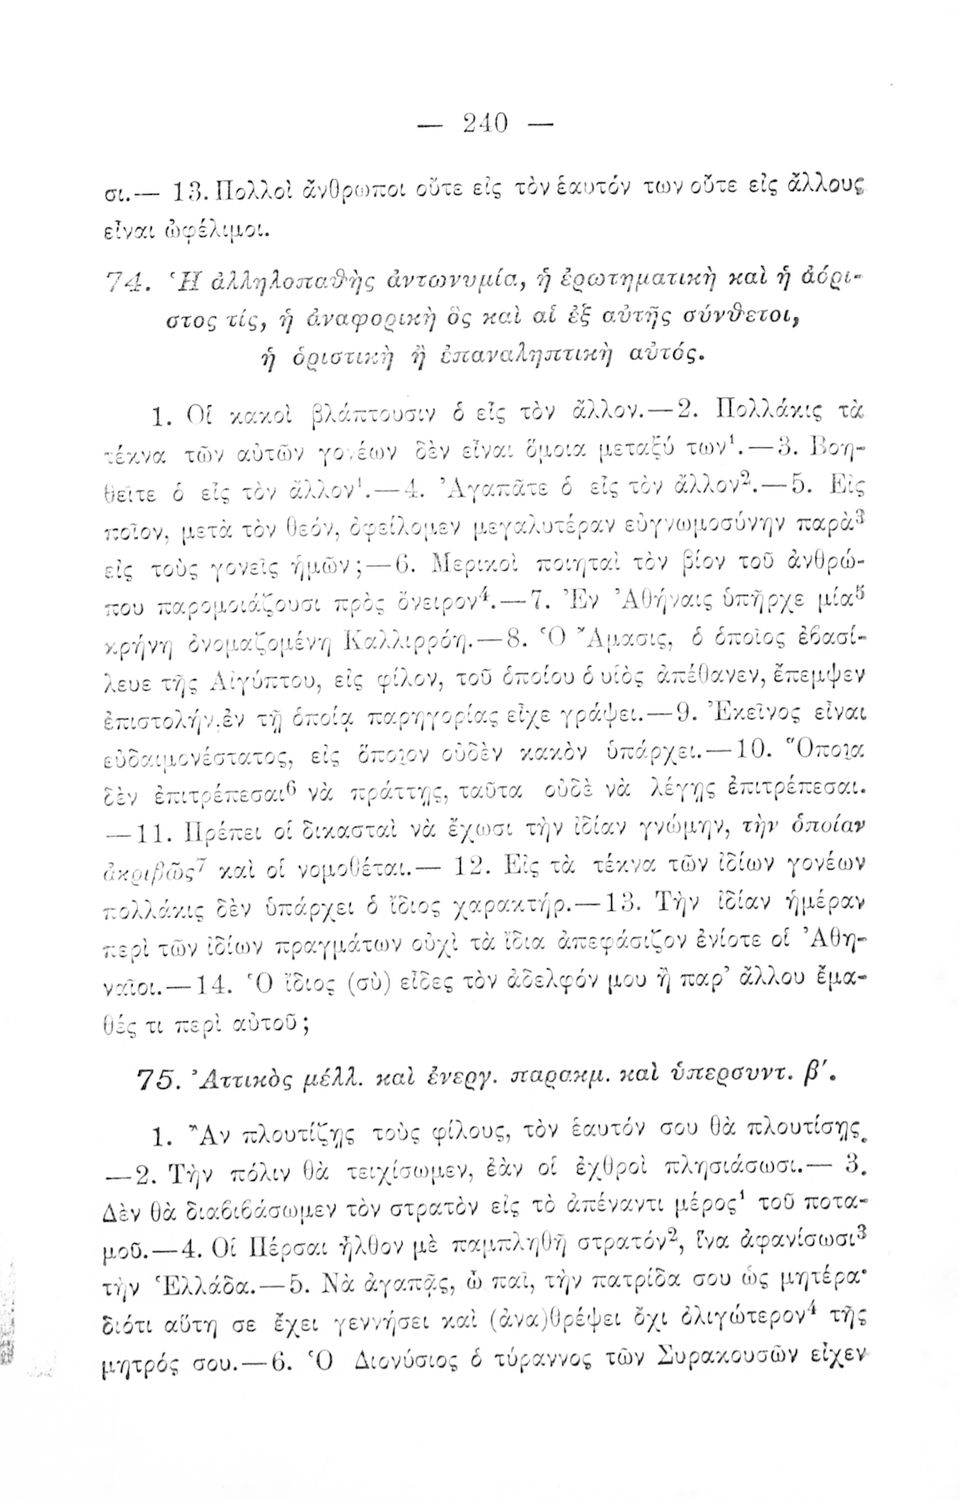 — 240 —
σι.— 13. Πολλοὶ ἄνθρωποι οὔτε εἰς τὸν ἑαυτόν των οὔτε εἰς ἄλλους
εἶναι ὠφέλιμοι.
74. Ἡ ἀλληλοπαθὴς ἀντωνυμία, ἡ ἐρωτηματικὴ καὶ ἡ ἀόρι-
στος τίς, ἡ ἀναφορικὴ ὃς καὶ αἱ ἐξ αὐτῆς σύνθετοι,
ἡ ὁριστικὴ ἢ ἐπαναληπτικὴ αὐτός.
1. Οἱ κακοὶ βλάπτουσιν ὁ εἷς τὸν ἄλλον.—2. Πολλάκις τὰ
τέκνα τῶν αὐτῶν γονέων δὲν εἶναι ὅμοια μεταξύ των¹.—3. Βοη-
θεῖτε ὁ εἷς τὸν ἄλλον¹.—4. Ἀγαπᾶτε ὁ εἷς τὸν ἄλλον².—5. Εἰς
ποῖον, μετὰ τὸν θεόν, ὀφείλομεν μεγαλυτέραν εὐγνωμοσύνην παρὰ³
εἰς τοὺς γονεῖς ἡμῶν;—6. Μερικοὶ ποιηταὶ τὸν βίον τοῦ ἀνθρώ-
που παρομοιάζουσι πρὸς ὄνειρον⁴.—7. Ἐν Ἀθήναις ὑπῆρχε μία⁵
κρήνη ὀνομαζομένη Καλλιρρόη.—8. Ὁ Ἄμασις, ὁ ὁποῖος ἐβασί-
λευε τῆς Αἰγύπτου, εἰς φίλον, τοῦ ὁποίου ὁ υἱὸς ἀπέθανεν, ἔπεμψεν
ἐπιστολήν, ἐν τῇ ὁποίᾳ παρηγορίας εἶχε γράψει.—9. Ἐκεῖνος εἶναι
εὐδαιμονέστατος, εἰς ὅποιον οὐδὲν κακὸν ὑπάρχει.—10. Ὅποια
δὲν ἐπιτρέπεσαι⁶ νὰ πράττῃς, ταῦτα οὐδὲ νὰ λέγῃς ἐπιτρέπεσαι.
—11. Πρέπει οἱ δικασταὶ νὰ ἔχωσι τὴν ἰδίαν γνώμην, τὴν ὁποίαν
ἀκριβῶς⁷ καὶ οἱ νομοθέται.— 12. Εἰς τὰ τέκνα τῶν ἰδίων γονέων
πολλάκις δὲν ὑπάρχει ὁ ἴδιος χαρακτήρ.—13. Τὴν ἰδίαν ἡμέραν
περὶ τῶν ἰδίων πραγμάτων οὐχὶ τὰ ἴδια ἀπεφάσιζον ἐνίοτε οἱ Ἀθη-
ναῖοι.—14. Ὁ ἴδιος (σὺ) εἶδες τὸν ἀδελφόν μου ἢ παρ’ ἄλλου ἔμα-
θές τι περὶ αὐτοῦ;
75. Ἀττικὸς μέλλ. καὶ ἐνεργ. παρακμ. καὶ ὑπερσυντ. β΄.
1. Ἂν πλουτίζῃς τοὺς φίλους, τὸν ἑαυτόν σου θὰ πλουτίσῃς.
—2. Τὴν πόλιν θὰ τειχίσωμεν, ἐὰν οἱ ἐχθροὶ πλησιάσωσι.— 3.
Δὲν θὰ διαβιβάσωμεν τὸν στρατὸν εἰς τὸ ἀπέναντι μέρος¹ τοῦ ποτα-
μοῦ.—4. Οἱ Πέρσαι ἦλθον μὲ παμπληθῆ στρατόν², ἵνα ἀφανίσωσι³
τὴν Ἑλλάδα.—5. Νὰ ἀγαπᾷς, ὦ παῖ, τὴν πατρίδα σου ὡς μητέρα·
διότι αὕτη σε ἔχει γεννήσει καὶ (ἀνα)θρέψει ὄχι ὀλιγώτερον⁴ τῆς
μητρός σου.—6. Ὁ Διονύσιος ὁ τύραννος τῶν Συρακουσῶν εἶχεν